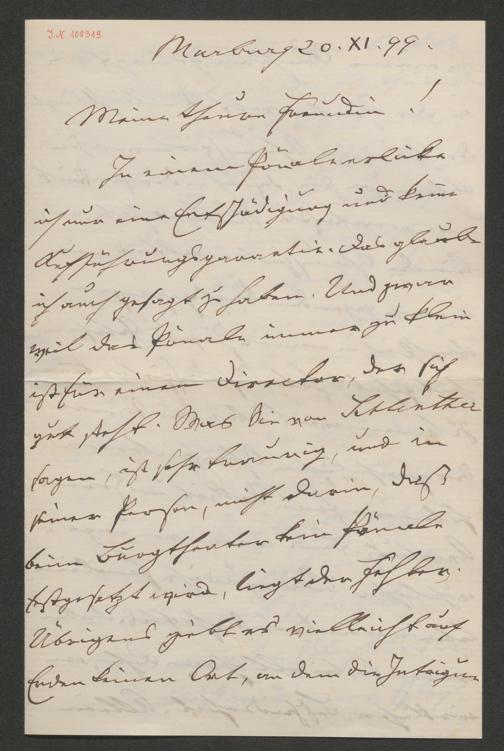 J.N. 100319
Marburg 20. XI. 99.
Meine theure Freundin!
In einem Pönale erblicke
ich nur eine Entschädigung und keine
Aufführungsgarantie. Das glaube
ich auch gesagt zu haben. Und zwar
weil das Pönale immer zu klein
ist für einen Director, der sich
gut steht. Was Sie von Schlenther
sagen, ist sehr traurig, und in
seiner Person, nicht darin, daß
beim Burgtheater kein Pönale
festgesetzt wird, liegt der Fehler.
Übrigens gibt es vielleicht auf
Erden keinen Ort, an dem die Intrigue